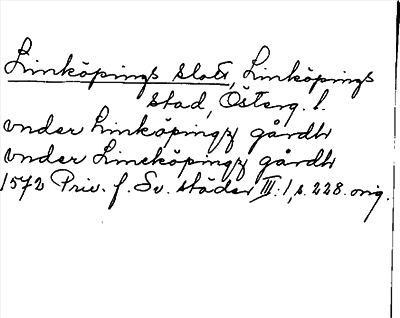 Linköpings slott, Linköpings
stad, Österg. l.
vnder Linköpingz gårdh
vnder Lincköpingz gårdh
1572 Priv. f. Sv. städer III:1, s. 228. orig.